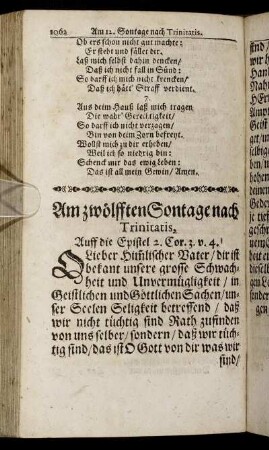 1062 Am 12. Sontage nach Trinitatis.
Ob ers schon nicht gut machte:
Er steht und fället dir.
Laß mich selbst dahin dencken/
Daß ich nicht fall in Sünd:
So darff ich mich nicht krencken/
Daß ich hätt' Straff verdient.
7.
Aus deim Hauß laß mich tragen
Die wahr' Gerechtigkeit/
So darff ich nicht verzagen/
Bin von deim Zorn befreyt.
Wollst mich zu dir erheben/
Weil ich so niedrig bin:
Schenck mir das ewig Leben:
Das ist all mein Gewin/ Amen.
Am zwölfften Sontage nach
Trinitatis,
Auff die Epistel 2. Cor. 3. v. 4.
O Lieber Himlischer Vater/ dir ist
bekant unsere grosse Schwach-
heit und Unvermügligkeit/ in
Geistlichen und Göttlichen Sachen/ un-
ser Seelen Seligkeit betreffend/ daß
wir nicht tüchtig sind Rath zufinden
von uns selber/ sondern/ daß wir tüch-
tig sind/ das ist O Gott von dir was wir
sind/